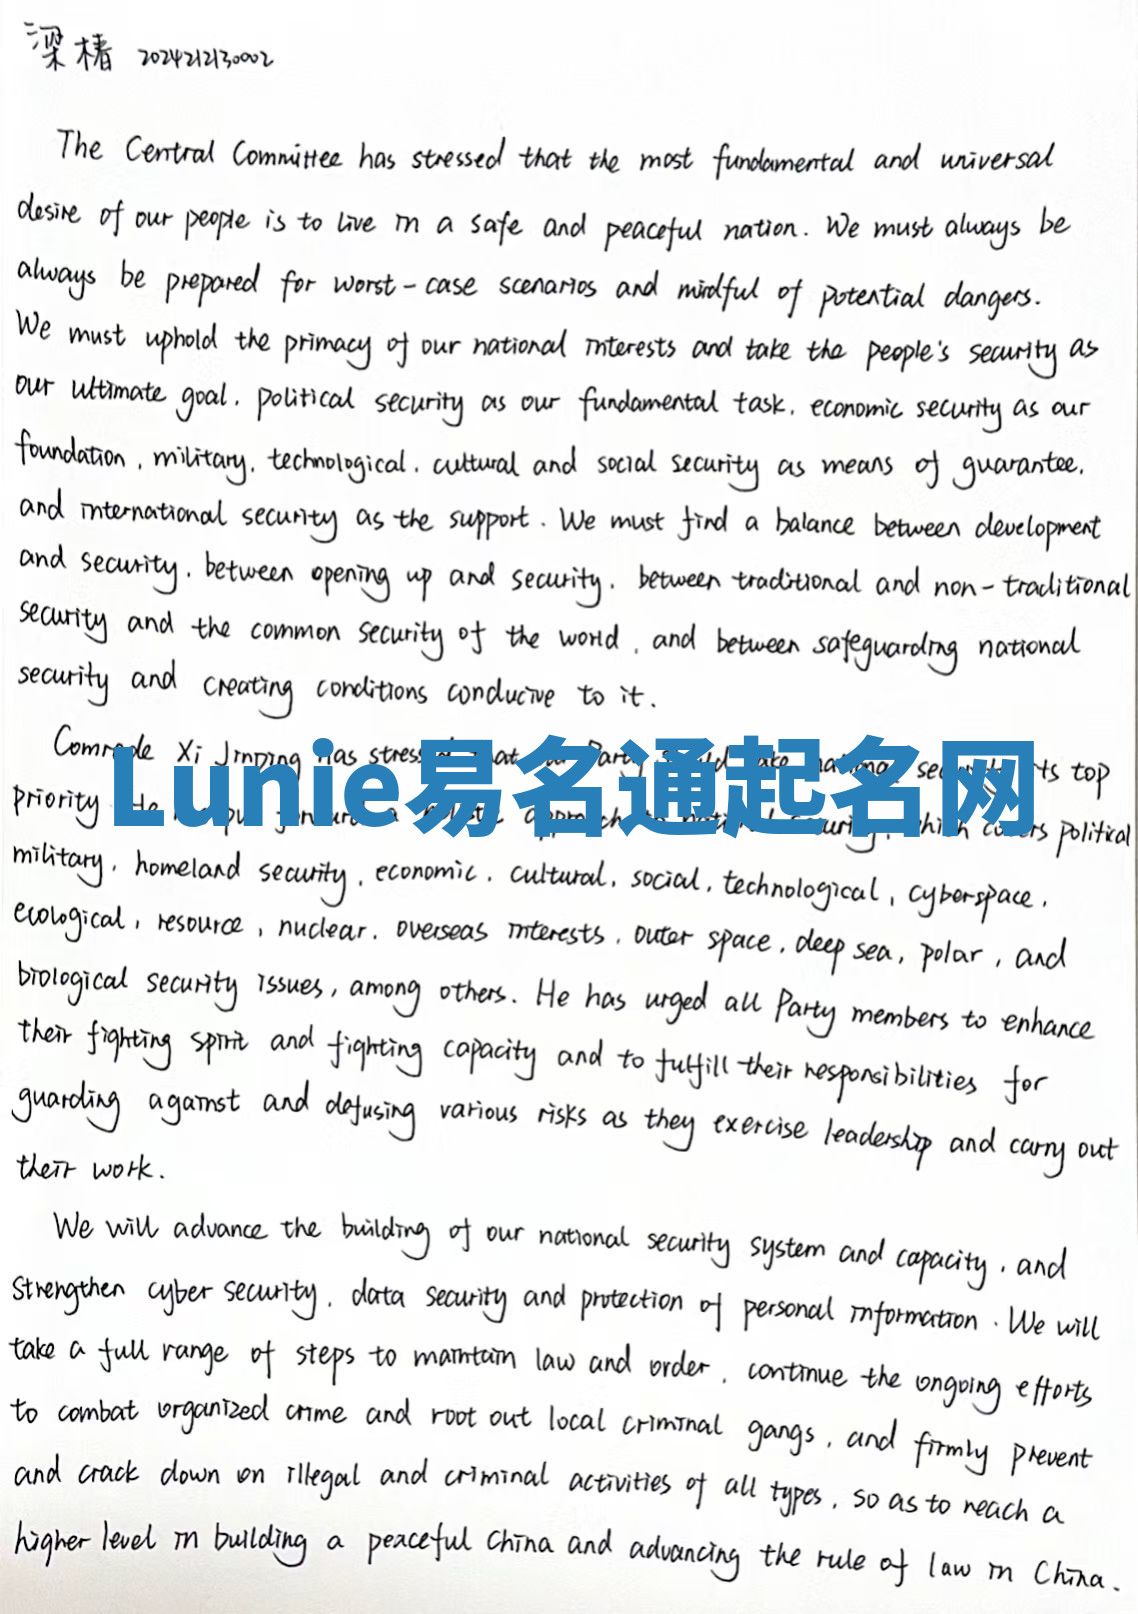 梁椿 2024212130002
The Central Committee has stressed that the most fundamental and universal
desire of our people is to live in a safe and peaceful nation. We must always be
always be prepared for worst-case scenarios and mindful of potential dangers.
We must uphold the primacy of our national interests and take the people's security as
our ultimate goal, political security as our fundamental task, economic security as our
foundation, military, technological, cultural and social security as means of guarantee,
and international security as the support. We must find a balance between development
and security, between opening up and security, between traditional and non-traditional
security and the common security of the world, and between safeguarding national
security and creating conditions conducive to it.
Comrade Xi Jinping has stressed that Party national security its top
Lunie易名通起名网
priority He a approach to security, which covers political
military, homeland security, economic, cultural, social, technological, cyberspace,
ecological, resource, nuclear, overseas interests, outer space, deep sea, polar, and
biological security issues, among others. He has urged all Party members to enhance
their fighting spirit and fighting capacity and to fulfill their responsibilities for
guarding against and defusing various risks as they exercise leadership and carry out
their work.
We will advance the building of our national security system and capacity, and
strengthen cyber security, data security and protection of personal information. We will
take a full range of steps to maintain law and order, continue the ongoing efforts
to combat organized crime and root out local criminal gangs, and firmly prevent
and crack down on illegal and criminal activities of all types, so as to reach a
higher level in building a peaceful China and advancing the rule of law in China.